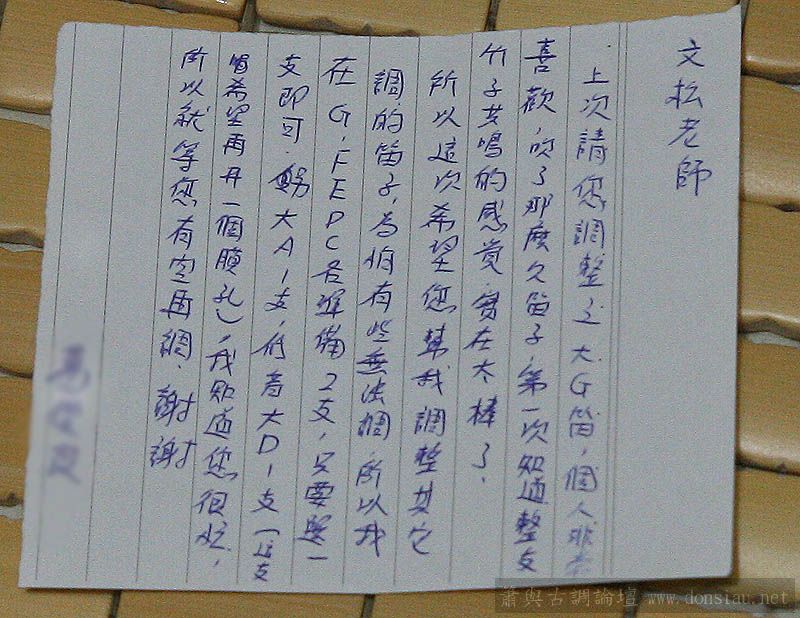 文松老師
上次請您調整了大G笛，個人非常
喜歡，吹了那麼久笛子，第一次知道整支
竹子共鳴的感覺，實在太棒了．
所以這次希望您幫我調整其它
調的笛子，為怕有些無法調，所以我
在G，FEDC各準備2支，只要選一
支即可．大A1支，低音大D1支（這支
希望再開一個膜孔），我知道您很忙，
所以就等您有空再調．謝謝
蕭與古調論壇 www.donsiau.net